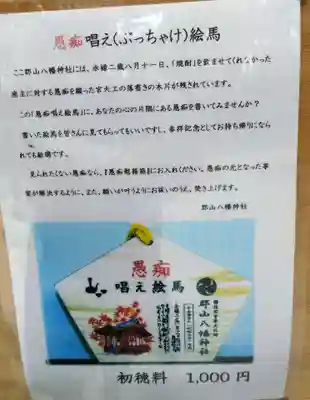 愚痴唱え(ぶっちゃけ)絵馬
ここ郡山八幡神社には、永禄二歳八月十一日、「焼酎」を飲ませてくれなかった
座主に対する愚痴を綴った宮大工の落書きの木片が残されています。
この「愚痴唱え絵馬」に、あなたの心の片隅にある愚痴を書いてみませんか?
書いた絵馬を皆さんに見てもらってもいいですし、参拝記念としてお持ち帰りになら
れても結構です。
見られたくない愚痴なら、『愚痴投箱』にお入れください。愚痴の元となった事
案が解決するように、また、願いが叶うようにお祓いのうえ、焚き上げます。
郡山八幡神社
愚痴
唱え絵馬
郡山八幡神社
初穂料 1,000円